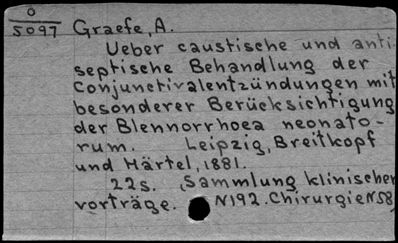 O
5097
Graefe, A.
Ueber caustische und anti-
septische Behandlung der
Conjunctivalentzündungen mit
besonderer Berücksichtigung
der Blennorrhoea neonato-
rum. Leipzig, Breitkopf
und Härtel, 1881.
22s. (Sammlung klinischer
vorträge. N192. Chirurgie N58)